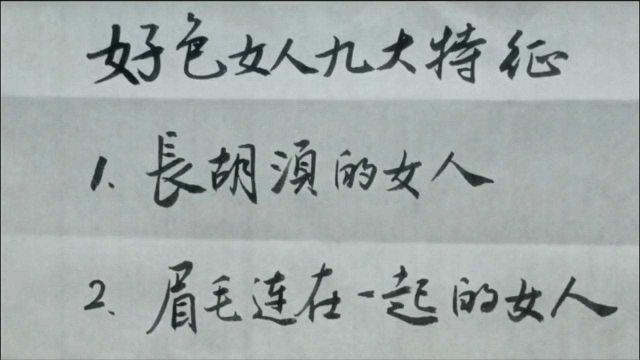 好色女人九大特征
1. 長胡須的女人
2. 眉毛连在一起的女人